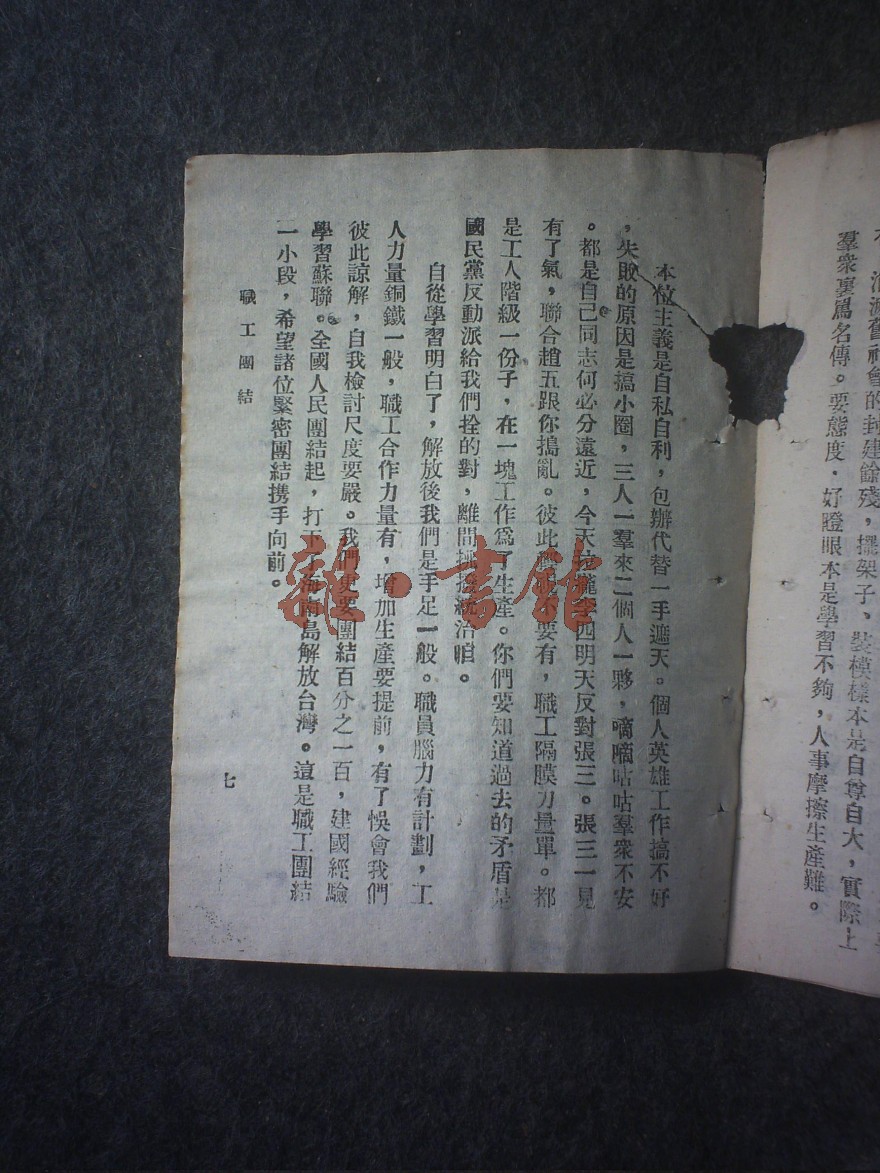 羣衆裏爲名傳。要態度·好瞪眼本是學習不夠，人事摩擦生產難。
本位主義是自私自利，包辦代替一手遮天。個人英雄工作搞不好
，失敗的原因是搞小圈，三人一羣來二個人一夥，嘀嘀咕咕羣衆不安
。都是自己同志何必分遠近，今天拉攏李四明天反對張三。張三一見
有了氣，聯合趙五跟你搗亂。彼此不要有，職工隔膜力量單。都
是工人階級一份子，在一塊工作爲了生產。你們要知道過去的矛盾是
國民黨反動派給我們拴的對，離間統治咱。
自從學習明白了，解放後我們是手足一般。職員腦力有計劃，工
人力量銅鐵一般，職工合作力量有，增加生產要提前，有了悞會我們
彼此諒解，自我檢討尺度要嚴。我們更要團結百分之一百，建國經驗
學習蘇聯。全國人民團結起，打下了海南島解放台灣。這是職工團結
一小段，希望諸位緊密團結携手向前。
職工團結
七
龍·書館